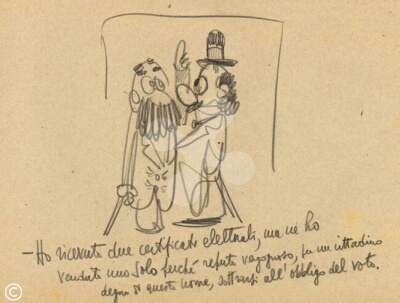 – Ho ricevuto due certificati elettorali, ma ne ho
venduto uno solo perché reputo vergognoso, per un cittadino
degno di questo nome, sottrarsi all'obbligo del voto.
©